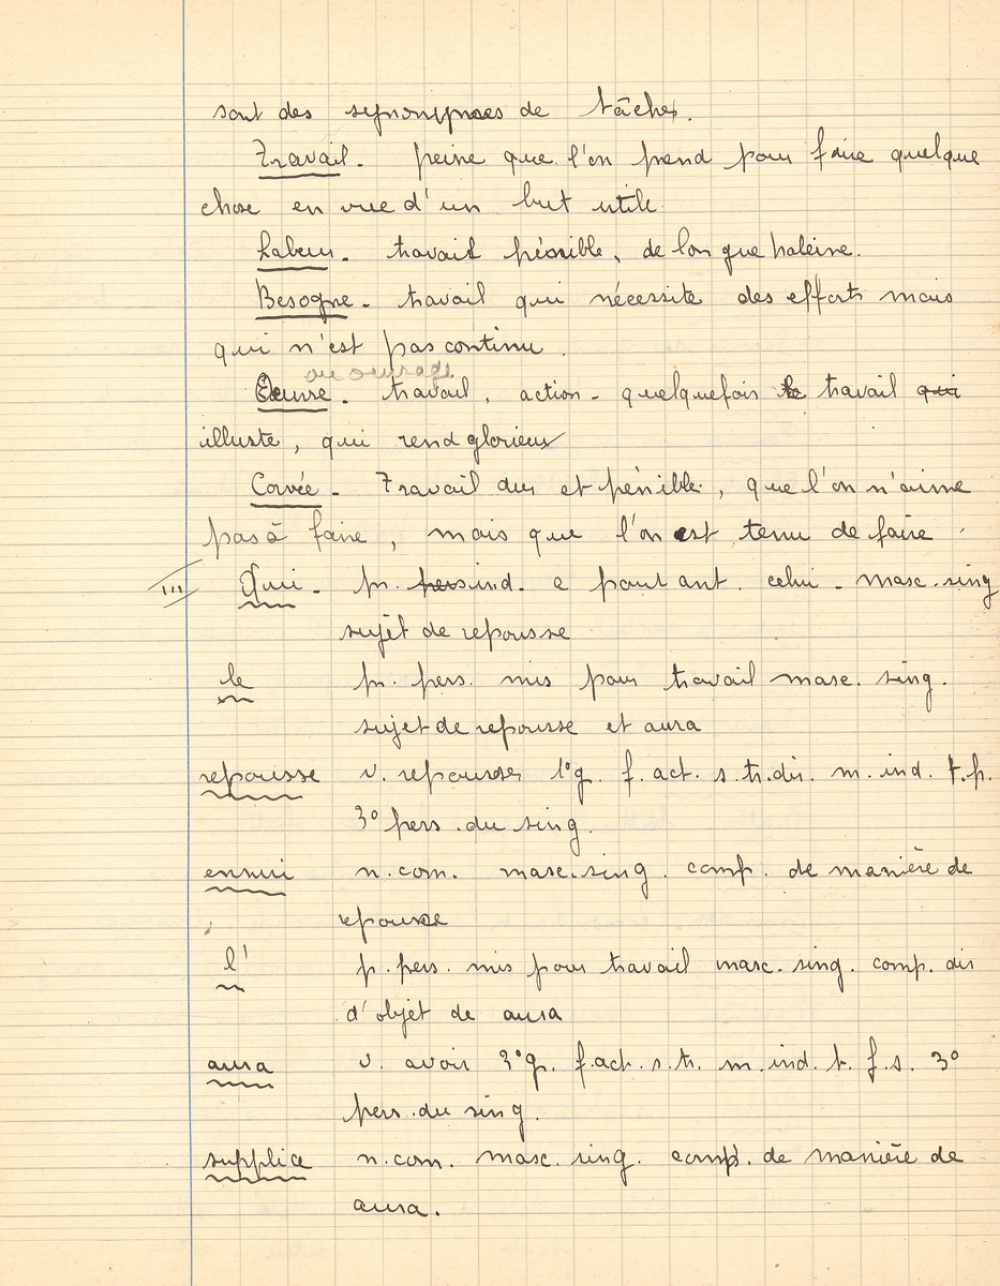 sont des synonymes de tâcher.
Travail. peine que l'on prend pour faire quelque
chose en vue d'un but utile
Labeur. travail pénible, de longue haleine.
Besogne. travail qui nécessite des efforts mais
qui n'est pas continu.
ou ouvrage.
Oeuvre. travail, action - quelquefois le travail qui
illustre, qui rend glorieux
Corvée - Travail dur et pénible, que l'on n'aime
pas à faire, mais que l'on est tenu de faire.
III Qui - pr. pers ind. e pour ant. celui - masc. sing
sujet de repousse
le pr. pers. mis pour travail masc. sing.
sujet de repousse et aura
repousse v. repousser 1°g. f. act. s. tr. dir. m. ind. t. p.
3° pers. du sing.
ennui n. com. masc. sing. comp. de manière de
repousse
l' p. pers. mis pour travail masc. sing. comp. dir
d'objet de aura
aura v. avoir 3°g. f. act. s. tr. m. ind. t. f. s. 3°
pers. du sing.
supplice n. com. masc. sing. comp. de manière de
aura.